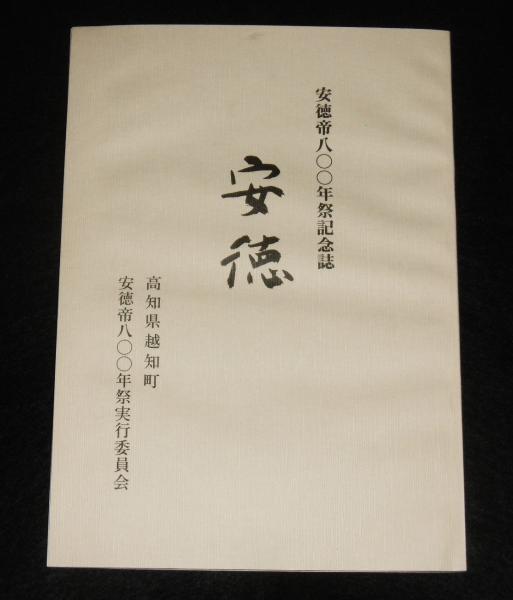 安徳帝八〇〇年祭記念誌
安徳
高知県越知町
安徳帝八〇〇年祭実行委員会